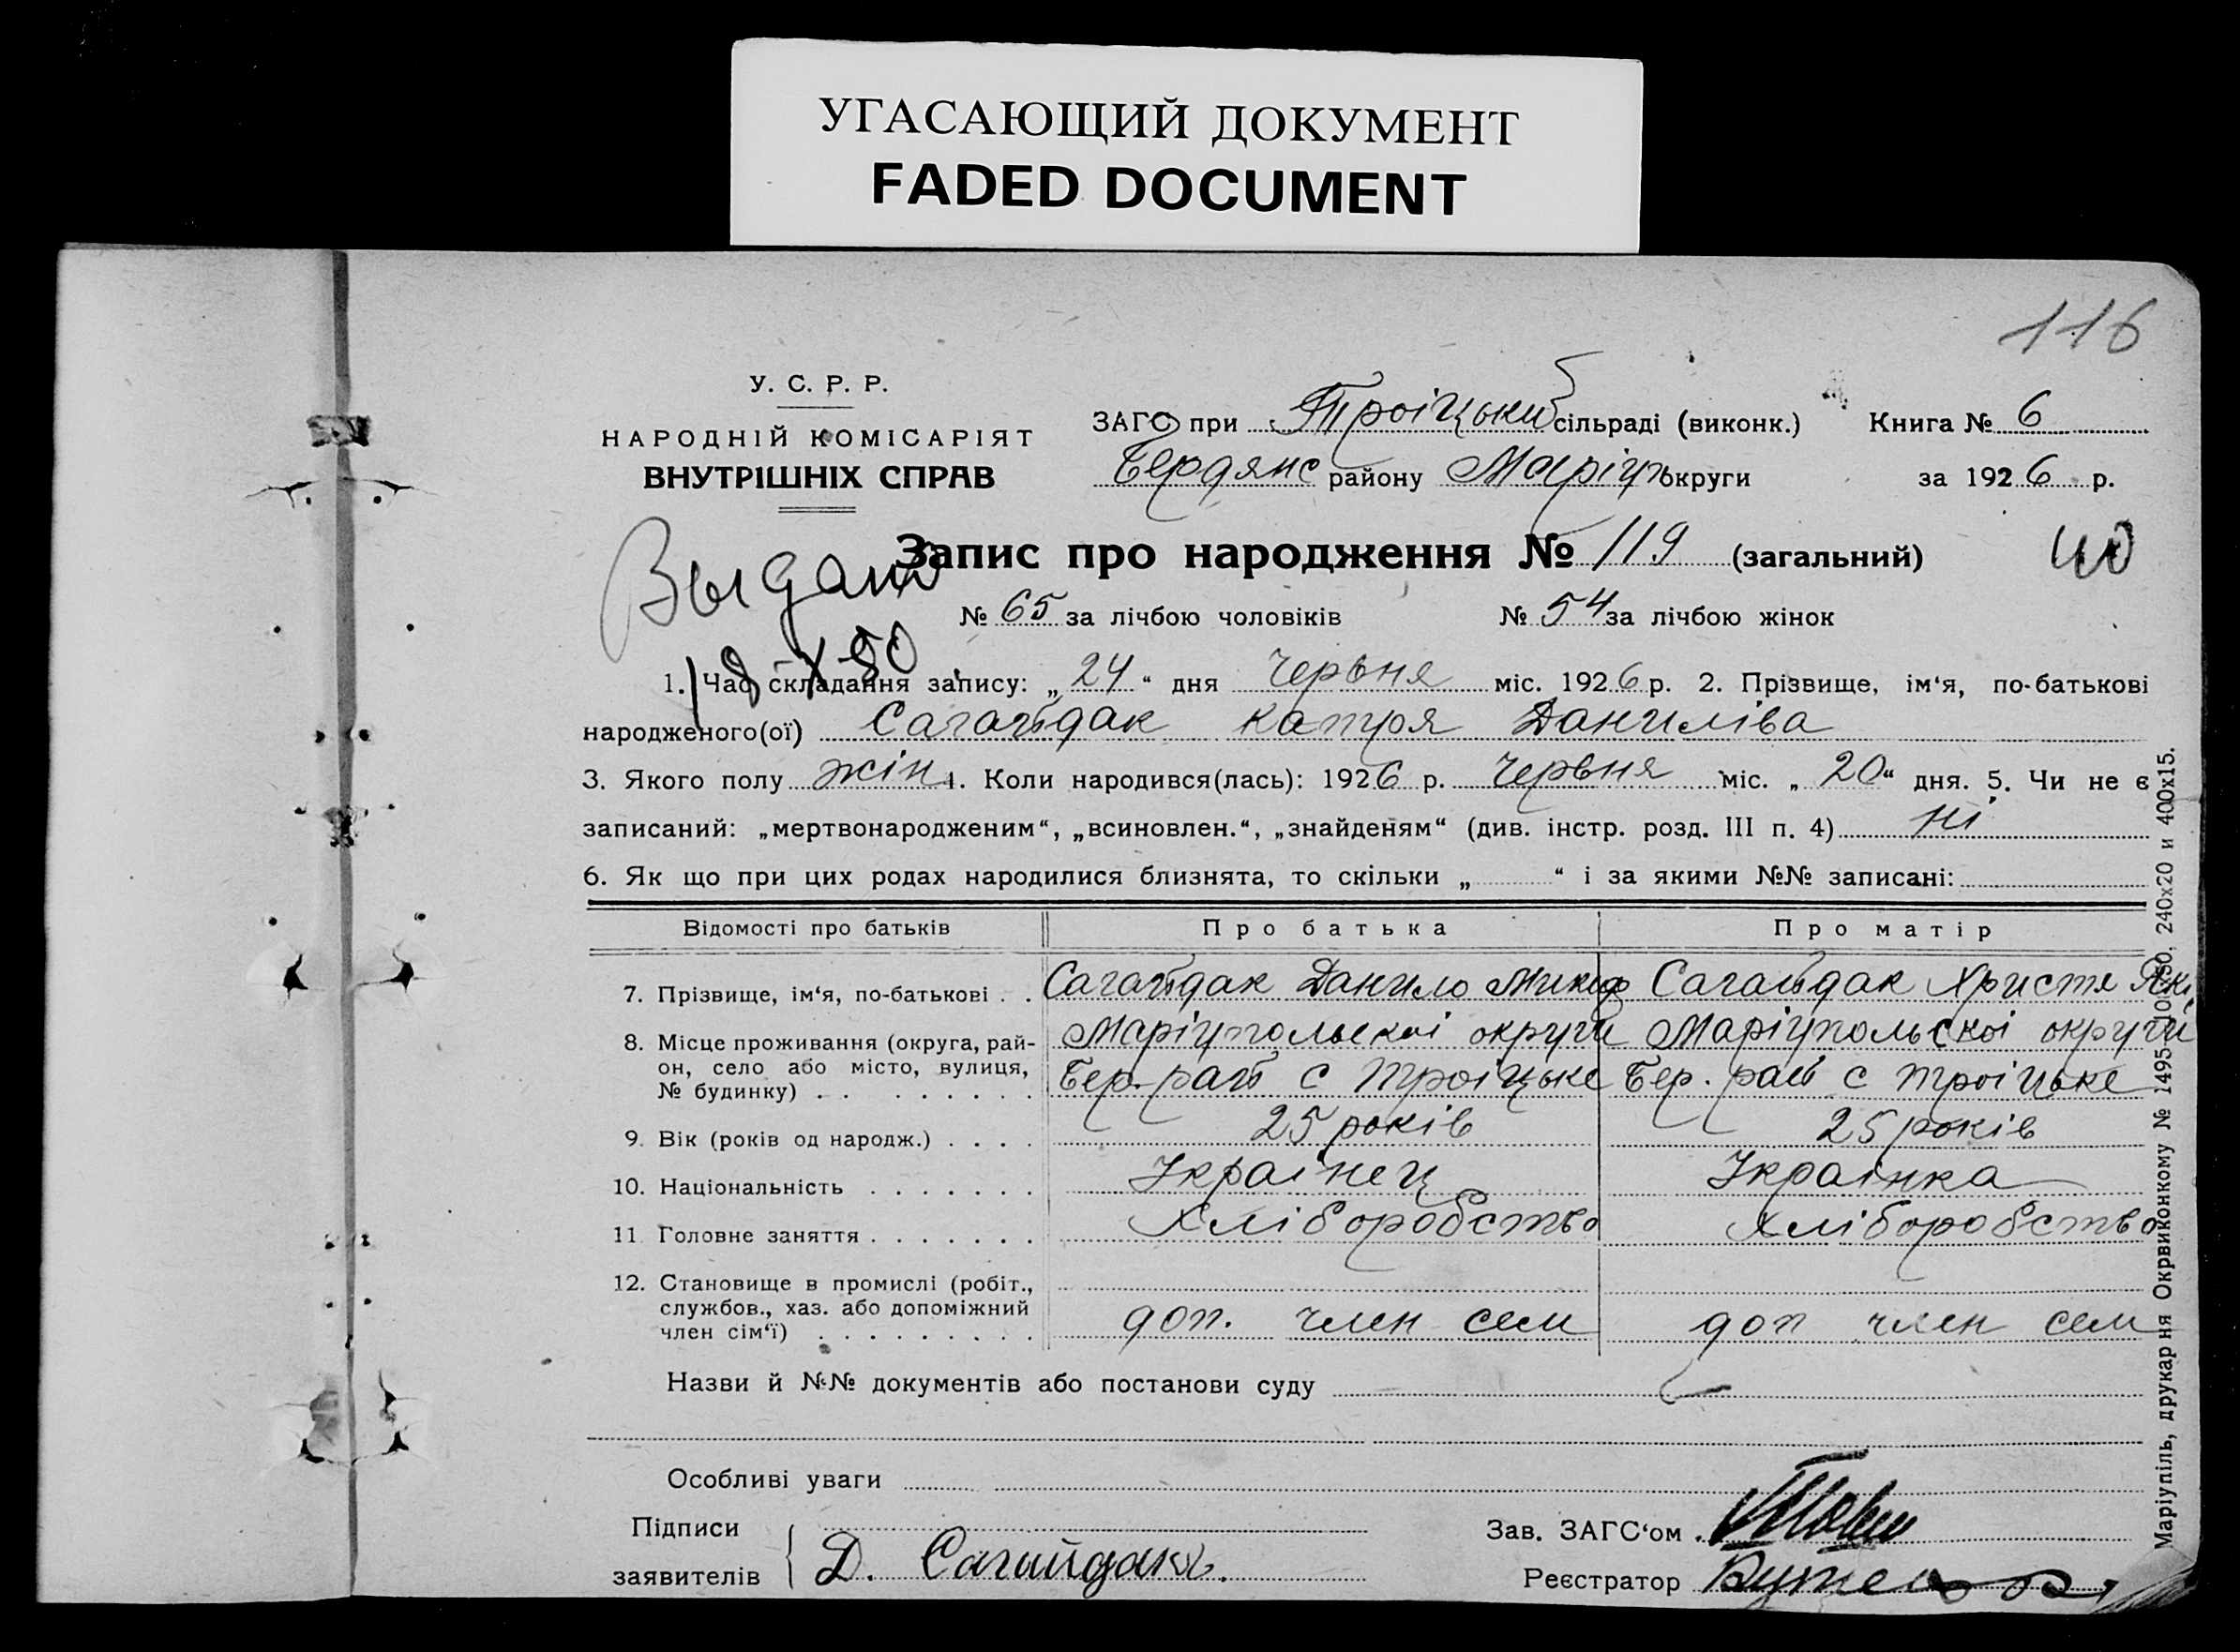 УГАСАЮЩИЙ ДОКУМЕНТ
FADED DOCUMENT
116
У. С. Р. Р.
НАРОДНІЙ КОМІСАРІЯТ
ВНУТРІШНІХ СПРАВ
ЗАГС при Троіцький сільраді (виконк.) Книга № 6
Бердянс району Маріуп округи за 1926 р.
Выдано
Запис про народження № 119 (загальний)
№ 65 за лічбою чоловіків № 54 за лічбою жінок
1. Час складання запису: „24“ дня червня міс. 1926 р. 2. Прізвище, ім‘я, по-батькові
народженого(ої) Сагайдак Катря Даниліва
3. Якого полу жін 4. Коли народився(лась): 1926 р. червня міс. „20“ дня. 5. Чи не є
записаний: „мертвонародженим“, „всиновлен.“, „знайденям“ (див. інстр. розд. III п. 4) ні
6. Як що при цих родах народилися близнята, то скільки „ “ і за якими №№ записані:
Відомості про батьків Про батька Про матір
7. Прізвище, ім‘я, по-батькові . . Сагайдак Данило Микиф Сагайдак Христя Яки
8. Місце проживання (округа, рай- Маріупольскоі округи Маріупольскоі округи
он, село або місто, вулиця, Бер. рай с Троіцьке Бер. рай с Троіцьке
№ будинку) . . . . . . . .
9. Вік (років од народж.) . . . . 25 років 25 років
10. Національність . . . . . . . Украінец Украінка
11 Головне заняття . . . . . . . Хліборобство Хліборобство
12. Становище в промислі (робіт.,
службов., хаз. або допоміжний
член сім‘ї) . . . . . . . . . доп. член сем доп член сем
Назви й №№ документів або постанови суду
Особливі уваги
Підписи
заявителів Д. Сагайдакъ.
Зав. ЗАГС‘ом
Реєстратор
Маріупіль, друкарня Окрвиконкому № 1495 240х20 и 400х15.